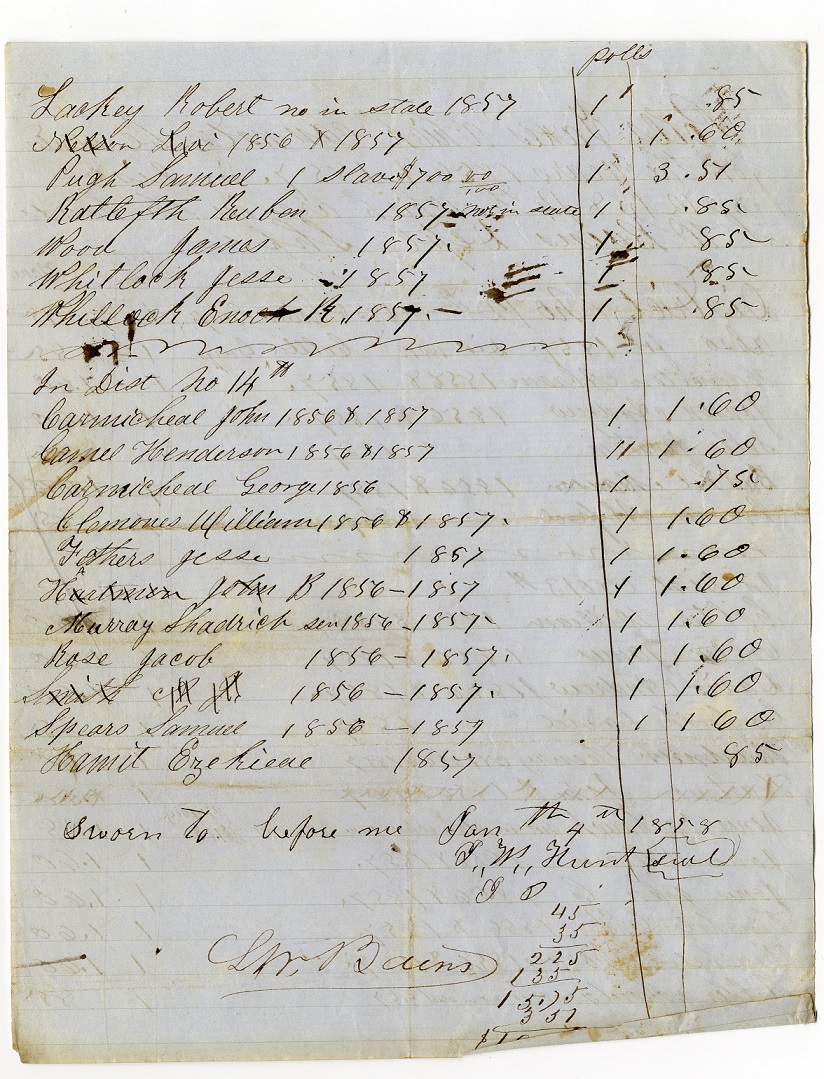 polls
Lackey Robert no in state 1857 1 .85
Nelson Levi 1856 & 1857 1 1.60
Pugh Samuel 1 slave $700 00/100 1 3.51
Ratleft Reuben 1857 not in state 1 .85
Wood James 1857. 1 85
Whitlock Jesse 1857 1 85
Whillock Enoch K. 1857. — 1 .85
In Dist No 14th
Carmicheal John 1856 & 1857 1 1.60
Camel Henderson 1856 & 1857 11 1.60
Carmicheal George 1856 1 .75
Clemones William 1856 & 1857. 1 1.60
Fathers Jesse 1857 1 1.60
Hartman John B 1856 – 1857 1 1.60
Murray Shadrich sen 1856 – 1857. 1 1.60
Rose Jacob 1856 – 1857. 1 1.60
Smith 1856 – 1857. 1 1.60
Spears Samuel 1856 – 1857 1 1 60
Hamit Ezekieal 1857 85
Sworn to before me Jan th 4th 1858
J,, W,, Hunt seal
J P
45
35
225
135
15.75
351
S W. Bains